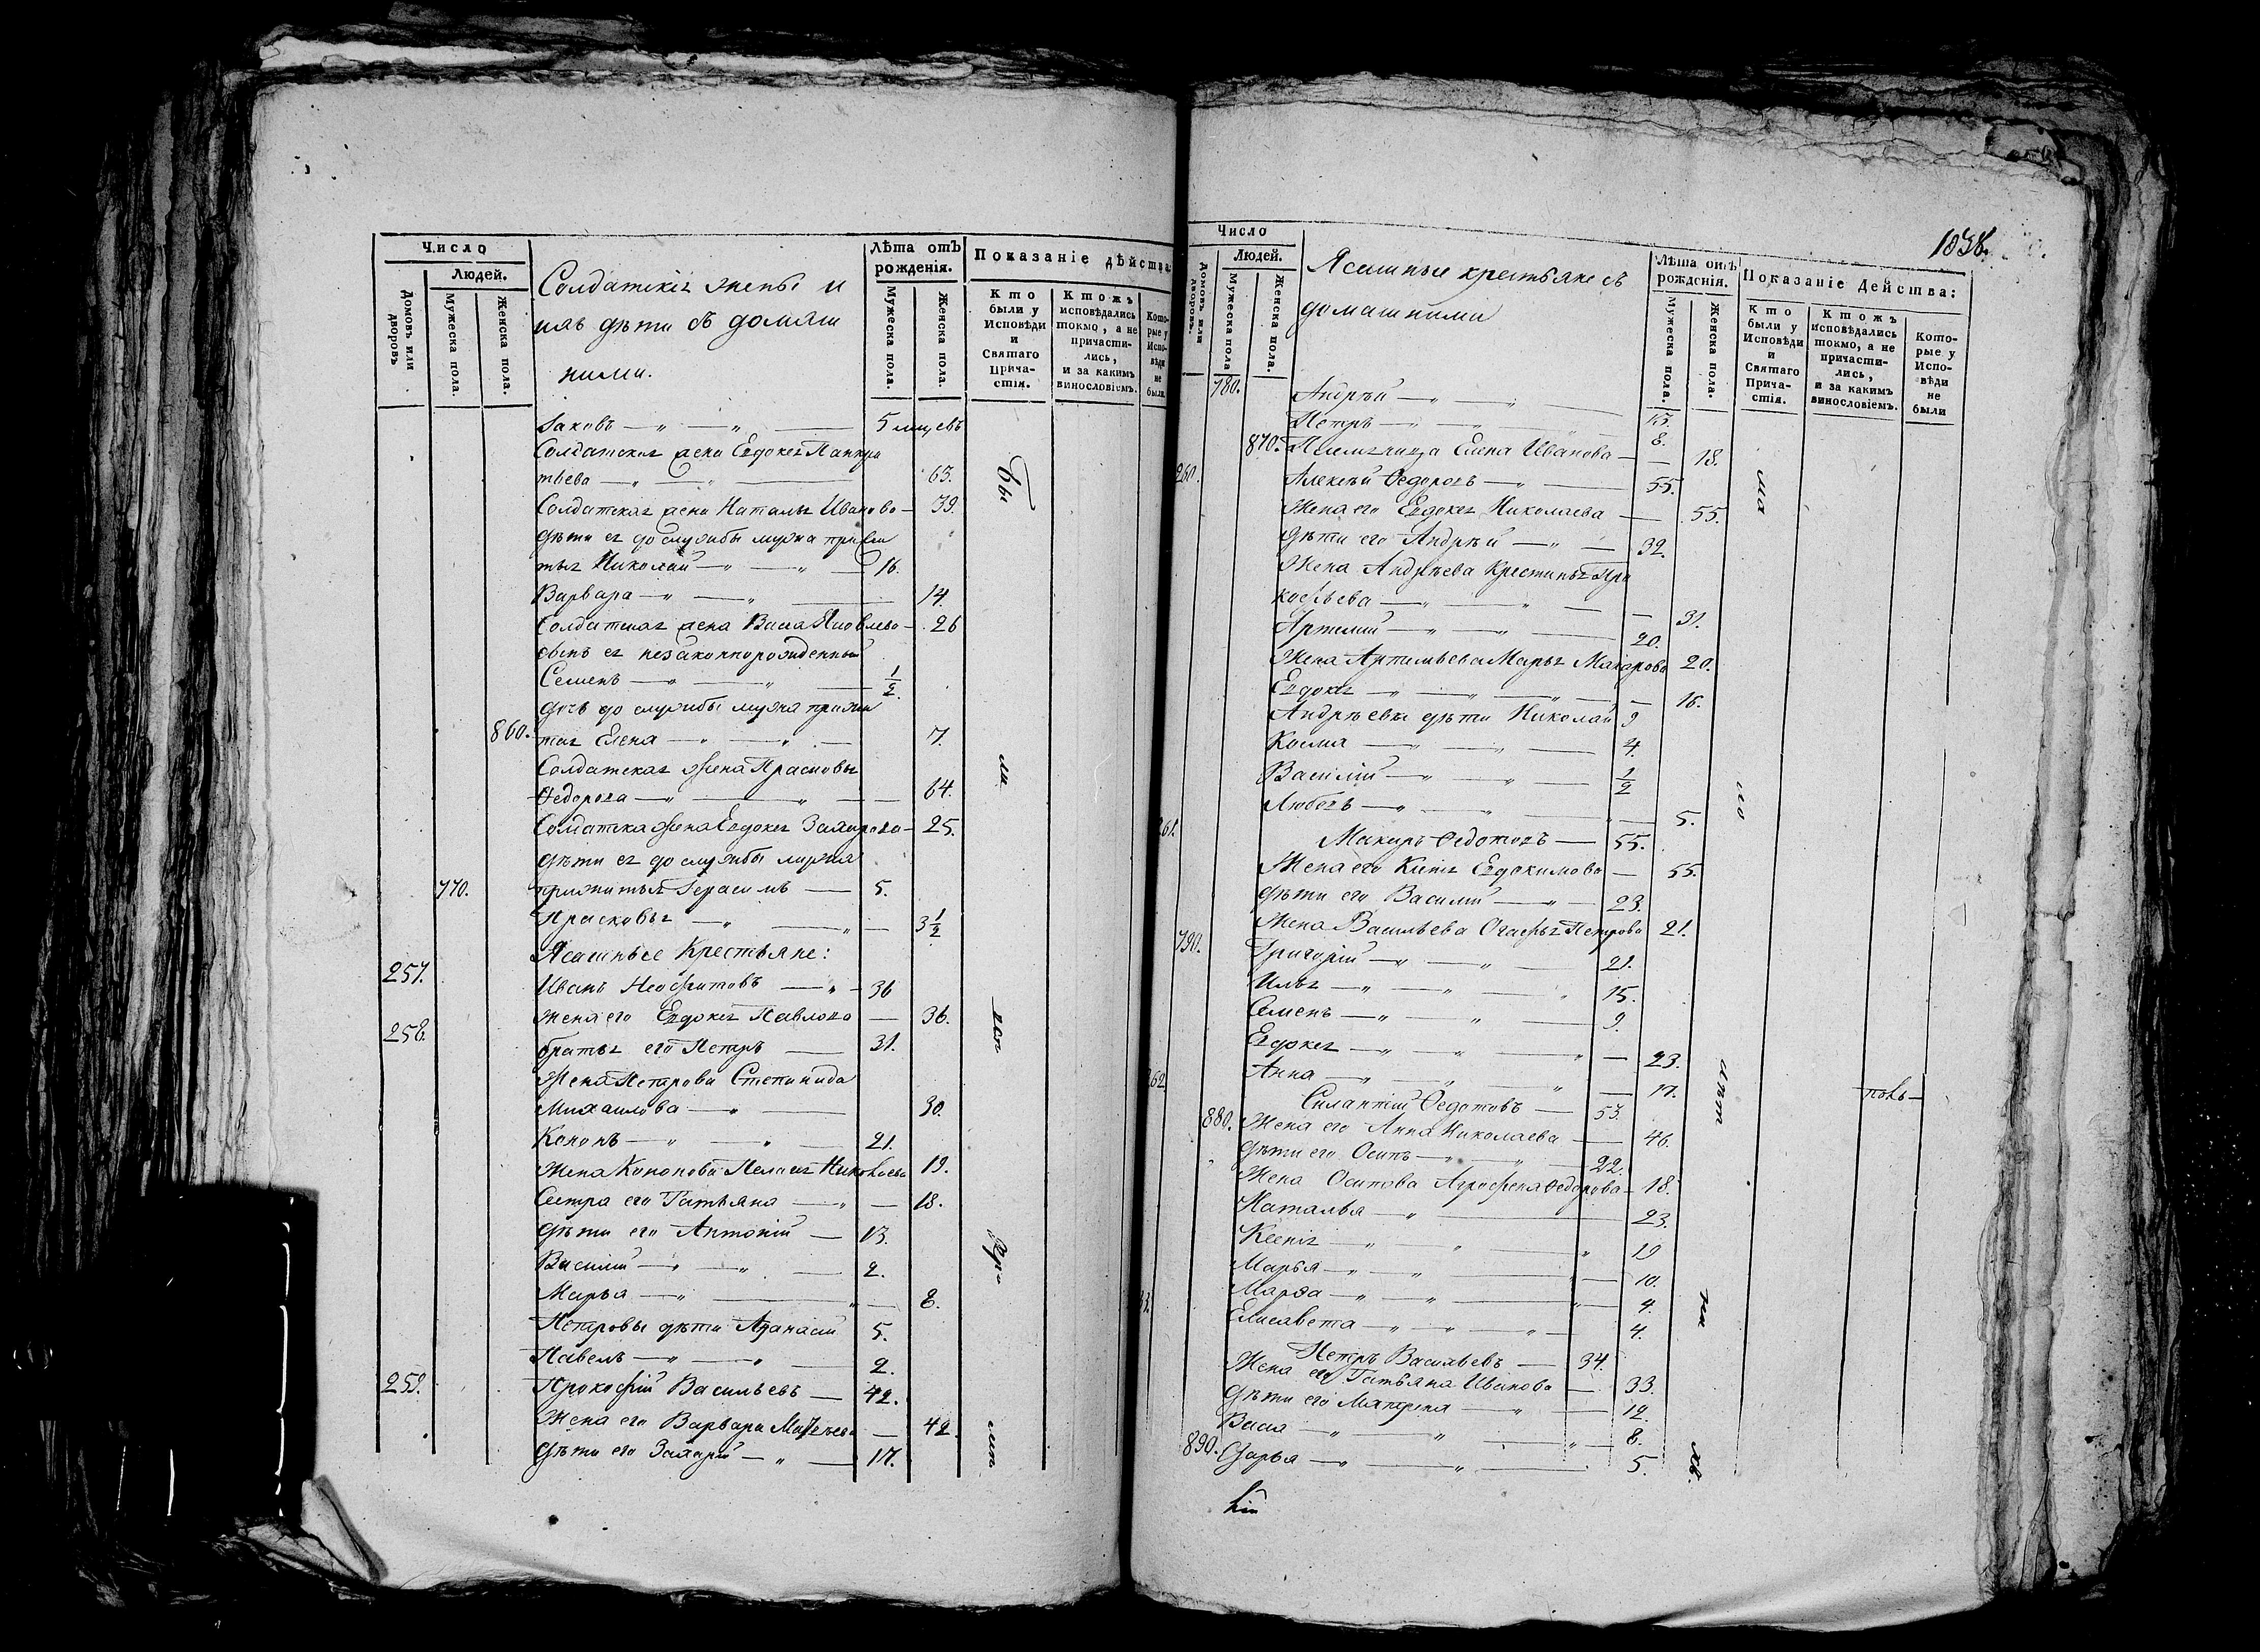 Число
Людей.
Домовъ или дворовъ
Мужеска пола.
Женска пола.
Солдатскія жены и
ихъ дѣти съ домаш
ними.
Лѣта отъ рожденія.
Мужеска пола.
Женска пола.
Показаніе дѣйства
Кто были у Исповѣди и Святаго Прича-стія.
Ктожъ исповѣдались токмо, а не причасти-лись, и за какимъ винословіемъ.
Кото-рые у Испо-вѣди не были.
Iаковъ — 5 мцевъ
Солдатская жена Евдокея Панкра
тьева — 63.
Солдатская жена Наталья Иванова — 39.
дѣти ея до службы мужа прижи
тыя Николай — 16.
Варвара — 14.
Солдатская жена Васса Яковлева — 26
сынъ ея незаконнорожденный
Семенъ — 1/2.
дочь до службы мужа прижи
860. тая Елена — 7.
Солдатская жена Прасковья
Федорова — 64.
Солдатска жена Евдокея Захарова — 25.
дѣти ея до службы мужа
770. прижитыя Герасимъ — 5.
Прасковья — 3 1/2
Ясашные Крестьяне:
257. Иванъ Неофитовъ — 36
жена его Евдокея Павлова — 36.
258. братья его Петръ — 31.
Жена Петрова Степанида
Михаилова — 30.
Кононъ — 21.
Жена Кононова Пелагея Николаева 19.
Сестра его Татьяна — 18.
Дѣти его Антоній — 13.
Василій — 2.
Марья — 8.
Петровы дѣти Афанасій 5.
Павелъ — 2.
259. Прокофій Васильевъ — 42.
Жена его Варвара Матвѣева — 42.
Дѣти его Захарій — 17.
Бы
ли
1838.
Число
Людей.
Домовъ или дворовъ.
Мужеска пола
Женска пола.
Ясашные крестьяне съ
домашними
Лѣта отъ рожденія.
Мужеска пола.
Женска пола.
Показаніе Дейсmва:
Кто были у Исповѣди и Святаго Прича-стія.
Ктожъ исповѣдались токмо, а не причасти-лись, и за какимъ винословіемъ.
Кото-рые у Испо-вѣди не были
780. Андрѣй — 15.
Петръ — 8.
870. Племяница Елена Иванова — 18.
260. Алексѣй Федоровъ — 55.
Жена его Евдокея Николаева — 55.
Дѣти его Андрѣй — 32.
Жена Андрѣева Крестинья Про
кофьева — 31.
Артемий — 20.
Жена Артемьева Марья Макарова 20.
Евдокея — 16.
Андрѣевы дѣти Николай 9
Косма — 4.
Василій — 1/2
Любовь — 5.
261. Макаръ Федотовъ — 55.
Жена его Ксенія Евдокимова — 55.
дѣти его Василій — 23.
Жена Васильева Агафья Петрова 21.
790. Григорій — 21.
Илья — 15.
Семенъ — 9.
Евдокея — 23.
Анна — 17.
262 Силантій Федотовъ — 53.
880. Жена его Анна Николаева — 46.
Дѣти его Осипъ — 22.
Жена Осипова Агрофена Федорова — 18.
Наталья — 23.
Ксенія — 19
Марья — 10.
Марфа — 4.
Елисавета — 4.
Петръ Васильевъ — 34.
Жена его Татьяна Иванова — 33.
Дѣти его Матрена — 12.
Васса — 8.
890. Дарья — 5.